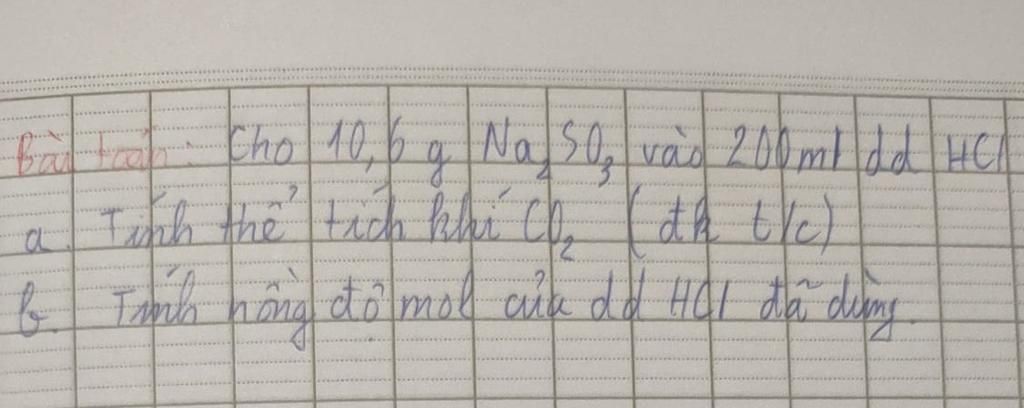 Bài toán: Cho 10,6 g Na₂SO₃ vào 200ml dd HCl
a. Tính thể tích khí CO₂ (đk t/c)
b. Tính nồng độ mol của dd HCl đã dùng.